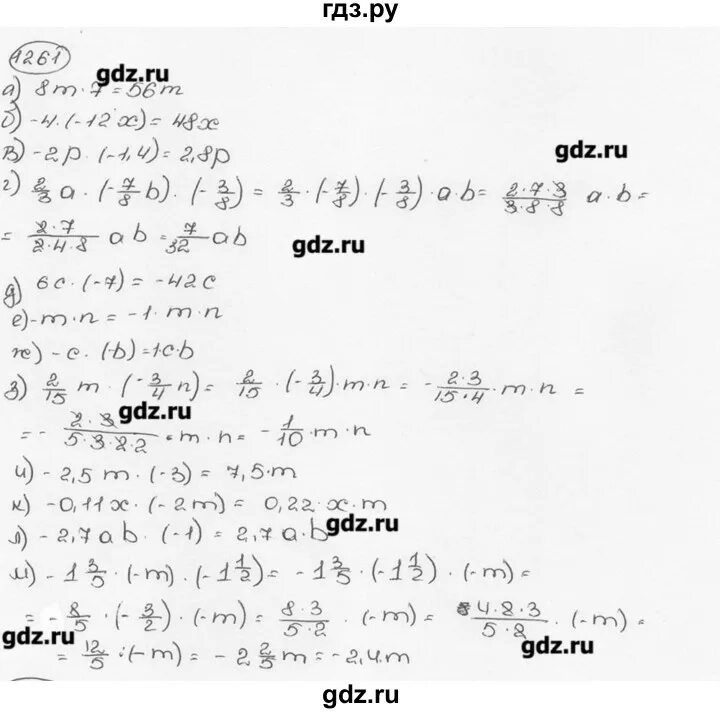 гдз.ру
1261
gdz.ru
а) 8m · 7 = 56m
б) -4 · (-12x) = 48x
в) -2p · (-1,4) = 2,8p
gdz.ru
г) 2/3 a · (-7/8 b) · (-3/8) = 2/3 · (-7/8) · (-3/8) · a · b = 2·7·3/3·8·8 a · b =
= 2·7/2·4·8 ab = 7/32 ab
gdz.ru
д) 6c · (-7) = -42c
е) -m · n = -1 · m · n
ж) -c · (-b) = 1c·b
з) 2/15 m · (-3/4 n) = 2/15 · (-3/4) · m · n = -2·3/15·4 · m · n =
gdz.ru
= - 2·3/5·3·2·2 · m · n = - 1/10 · m · n
и) -2,5m · (-3) = 7,5·m
к) -0,11x · (-2m) = 0,22·x·m
л) -2,7ab · (-1) = 2,7a·b
gdz.ru
м) -1 3/5 · (-m) · (-1 1/2) = -1 3/5 · (-1 1/2) · (-m) =
= -8/5 · (-3/2) · (-m) = 8·3/5·2 · (-m) = 4·2·3/5·2 · (-m) =
gdz.ru
gdz.ru
= 12/5 · (-m) = -2 2/5 m = -2,4·m
gdz.ru